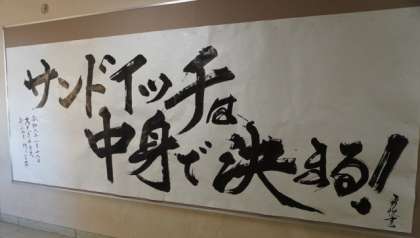 サンドイッチは
中身で決まる!